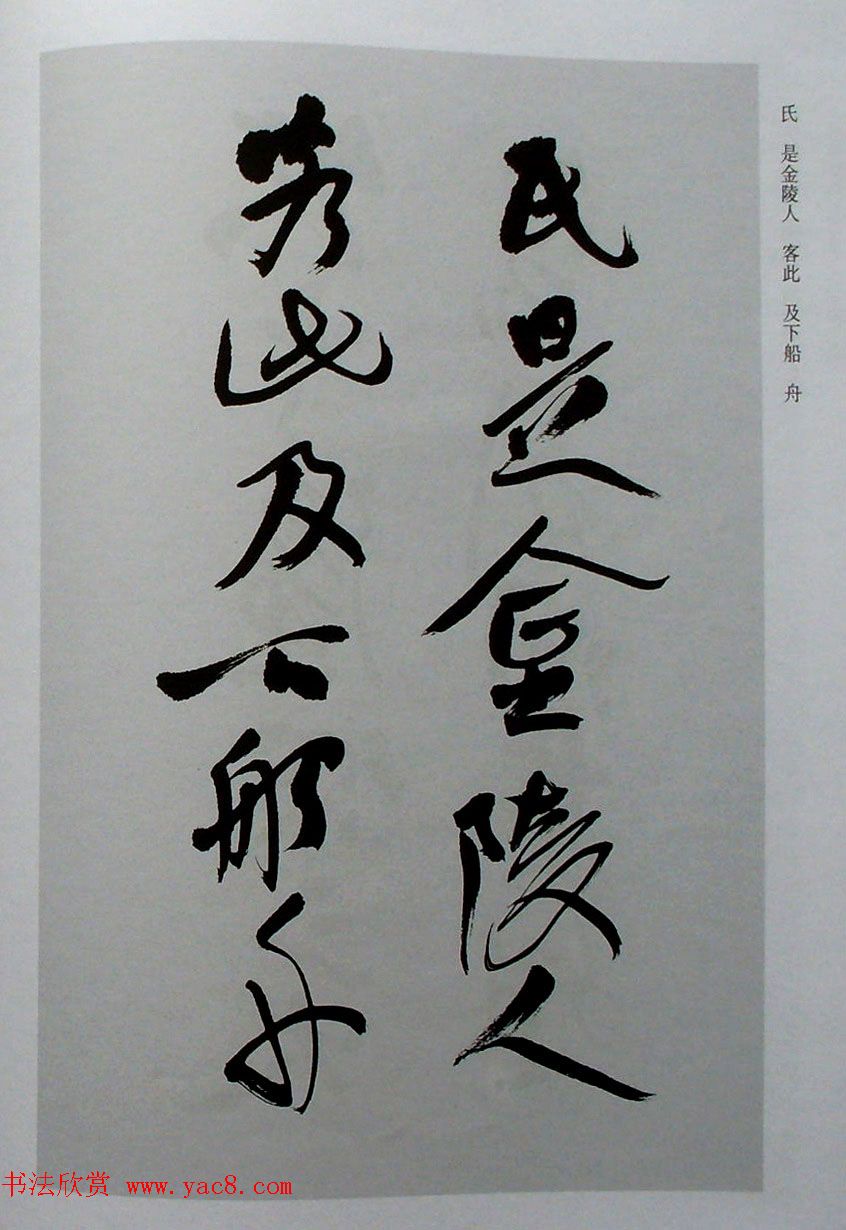 氏是金陵人
客此及下船舟
氏 是金陵人 客此 及下船 舟
书法欣赏 www.yac8.com